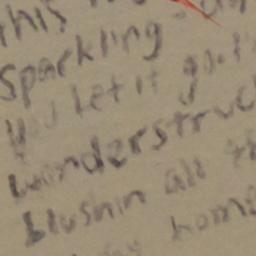 this
sparkling
you let it go. I'
wonderstruc
blushin all th
home